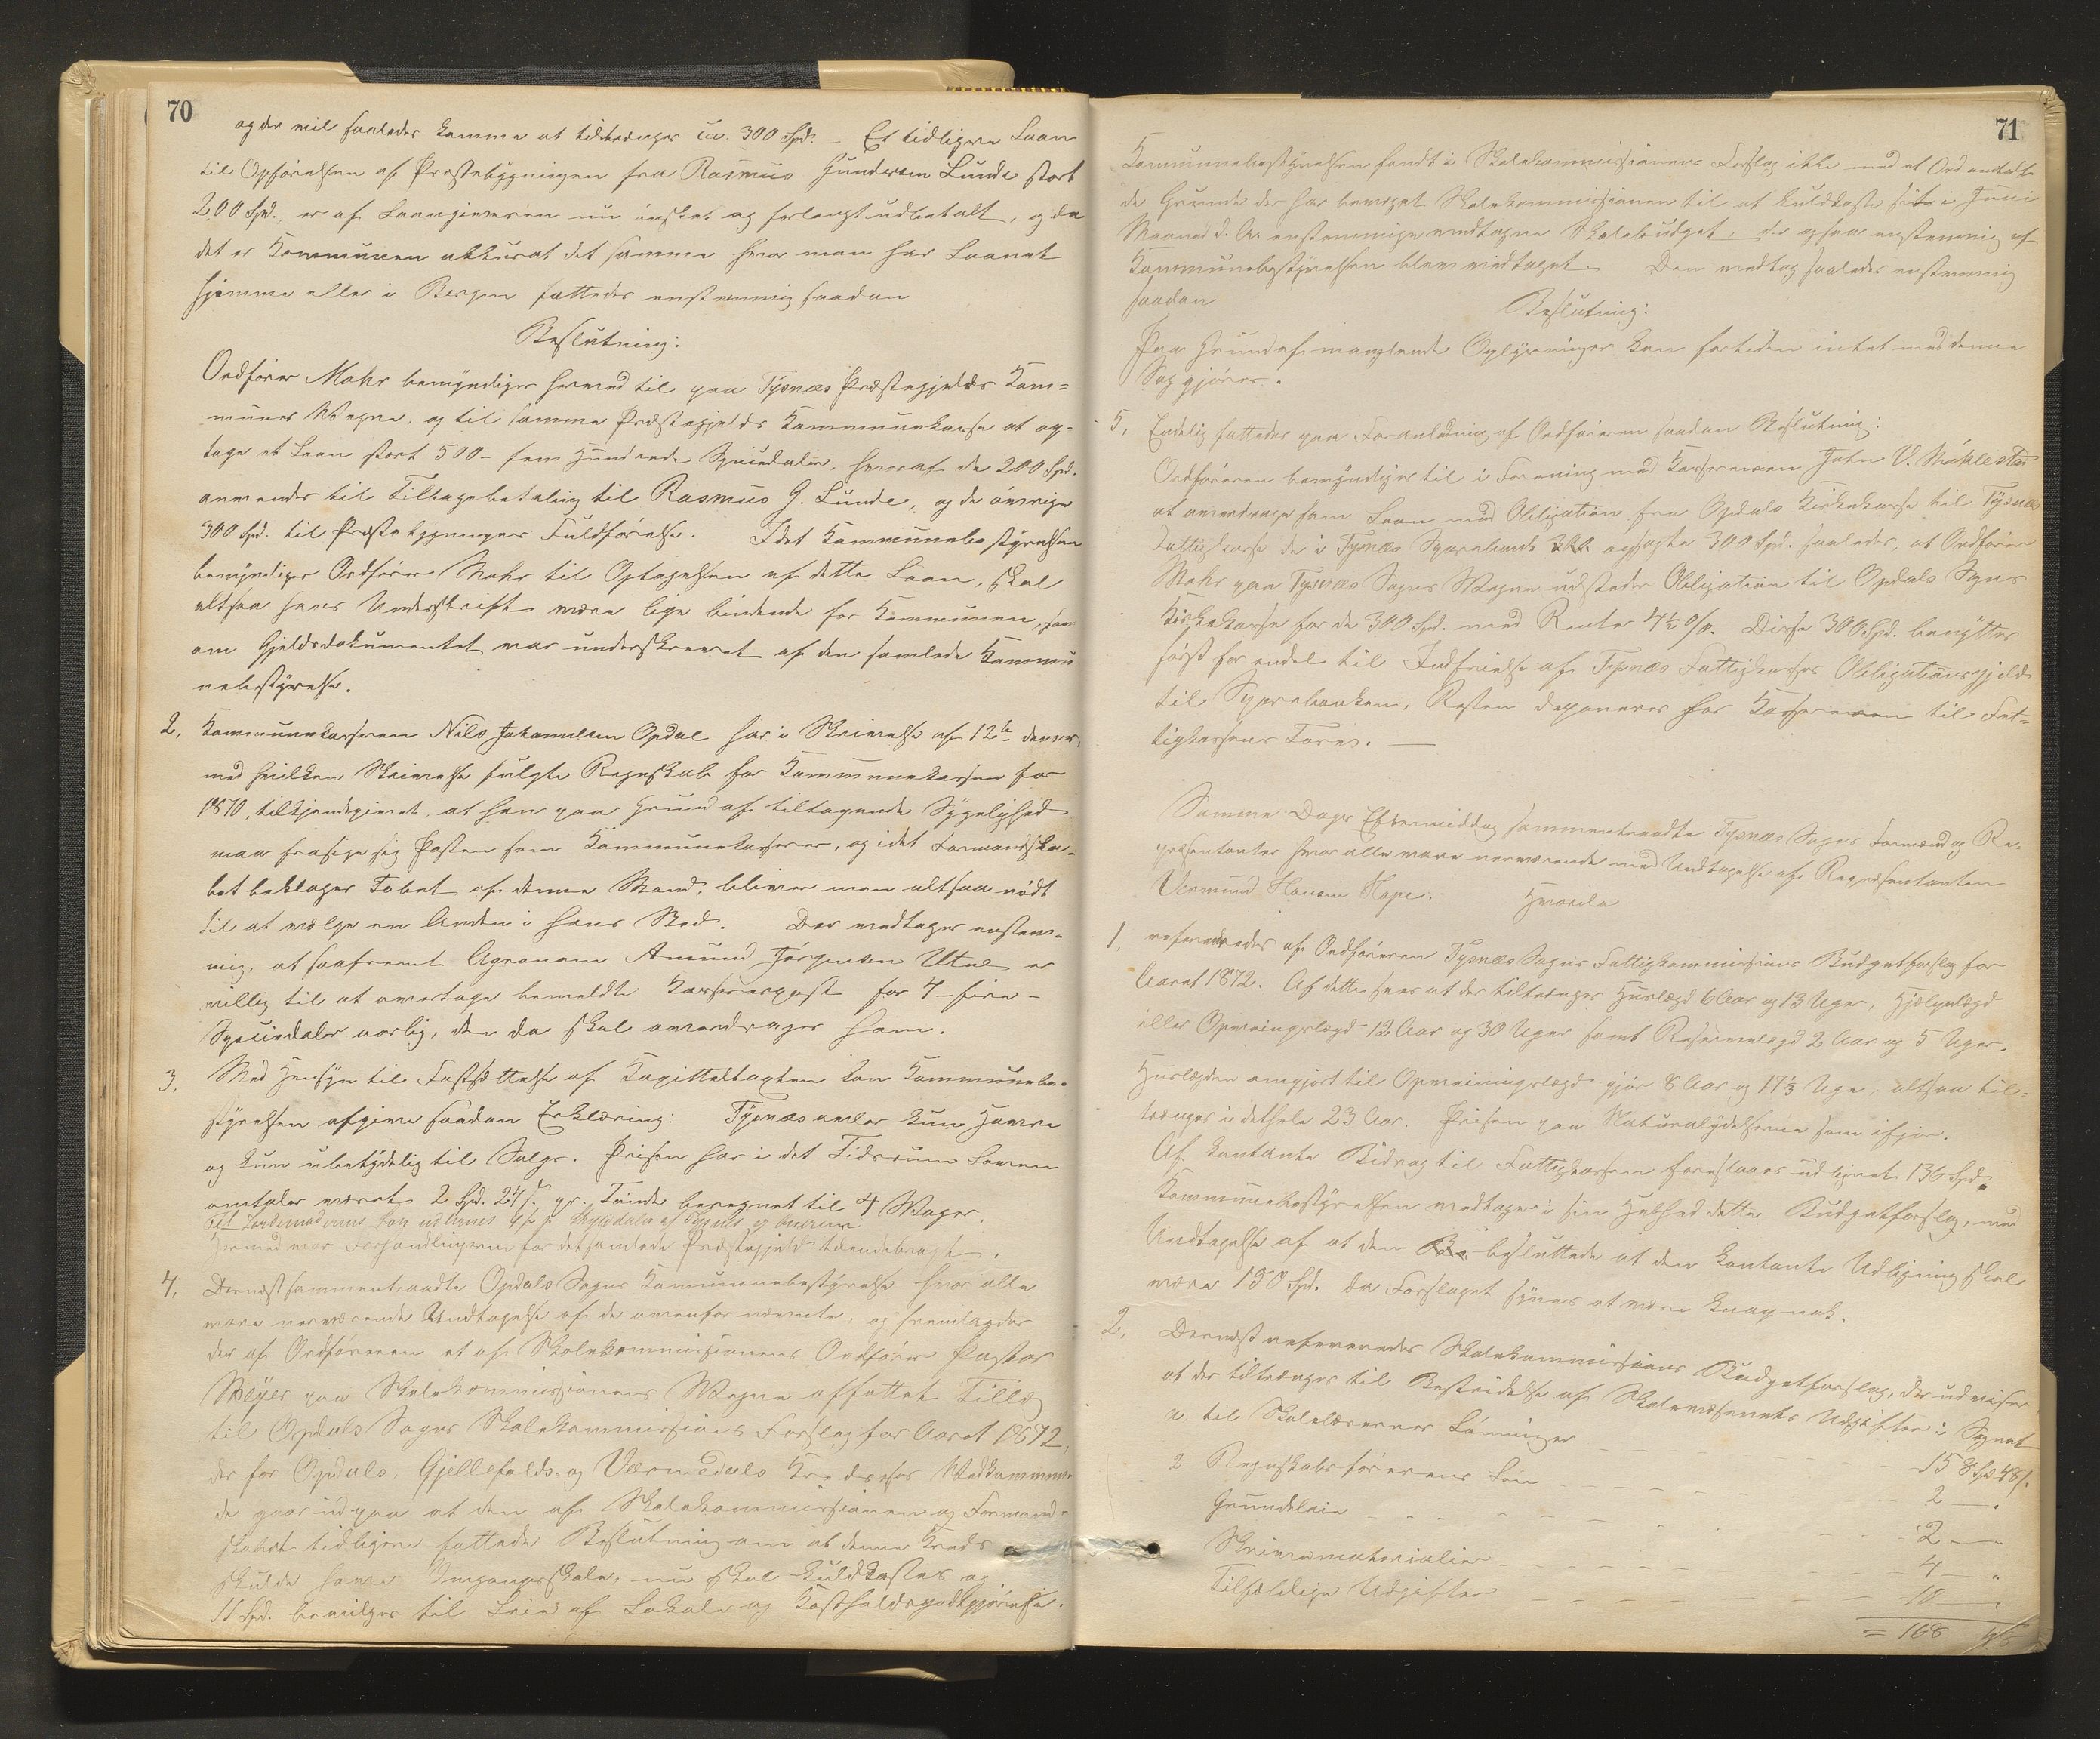 70
og der vil saaledes komme at tiltrænges ca. 300 Spd. – Et tidligere Laan
til Opførelsen af Præstebygningen fra Rasmus Gundersen Lunde stort
200 Spd., er af Laangiveren nu ønsket og forlangt udbetalt, og da
det er Kommunen akkurat det samme hvor man har Laanet
hjemme eller i Bergen fattedes enstemmig saadan
Beslutning:
Ordfører Mohr bemyndiges hermed til paa Tysnæs Præstegjelds Kom=
munes Vegne, og til samme Præstegjelds Kommunekasse at op-
tage et Laan stort 500 – fem Hundrede Speciedaler, hvoraf de 200 Spd.
anvendes til Tilbagebetaling til Rasmus G. Lunde, og de øvrige
300 Spd. til Præstebygningens Fuldførelse. Idet Kommunebestyrelsen
bemyndiger Ordfører Mohr til Optagelsen af dette Laan, skal
altsaa hans Underskrift være lige bindende for Kommunen, som
om Gjeldsdokumentet var underskrevet af den samlede Kommu
nebestyrelse.
2, Kommunekasseren Nils Johannesen Opdal har i Skrivelse af 12te dennes,
med hvilken Skrivelse fulgte Regnskab for Kommunekassen for
1870, tilkjendegivet, at han paa Grund af tiltagende Sygelighed
maa frasige sig Posten som Kommunekasserer, og idet Formandska-
bet beklager Tabet af denne Mand, bliver man altsaa nødt
til at vælge en Anden i hans Sted. Der vedtages enstem-
mig, at saafremt Agronom Amund Jørgensen Utne er
villig til at overtage bemeldte Kassererpost for 4 – fire –
Speciedaler aarlig, den da skal overdrages ham.
3, Med Hensyn til Fastsættelse af Kapiteltaxten kan Kommunebe-
styrelsen afgive saadan Erklæring: Tysnæs avler kun Havre
og kun ubetydelig til Salgs. Prisen har i det Tidsrum Loven
omtaler været 2 Spd. 24 s. pr. Tønde beregnet til 4 Voger.
Til Jordemoderens Løn udlignes 4 s. p. Skylddaler af Tysnæs og
Hermed var Forhandlingerne for det samlede Præstegjeld tilendebragt.
4, Dernæst sammentraadte Opdals Sogns Kommunebestyrelse hvor alle
vare nærværende Undtagelse af de ovenfor nævnte, og fremlagdes
der af Ordføreren et af Skolekommissionens Ordfører Pastor
Meyer paa Skolekommissionens Vegne affattet Tillæg
til Opdals Sogns Skolekommissions Forslag for Aaret 1872,
der for Opdals, Gjellefalds og Værnedals Kredses Vedkommen-
de gaar ud paa at den af Skolekommissionen og Formand-
skabet tidligere fattede Beslutning om at denne Kreds
skulde have Omgangsskole, nu skal kuldkastes og
11 Spd. bevilges til Leie af Lokale og Kostholdsgodtgjørelse.
71
Kommunebestyrelsen fandt i Skolekommissionens Forslag ikke med et Ord antydet
de Grunde der har bevæget Skolekommissionen til at kuldkaste sit i Juni
Maaned d. A. enstemmige vedtagne Skolebudget, der ogsaa enstemmig af
Kommunebestyrelsen blev vedtaget. Den vedtog saaledes enstemmig
saadan
Beslutning:
Paa Grund af manglende Oplysninger kan for tiden intet med denne
Sag gjøres.
5, Endelig fattedes paa Foranledning af Ordføreren saadan Beslutning:
Ordføreren bemyndiges til i Forening med Kassereren John V. Møklestad
at overdrage som Laan mod Obligation fra Opdals Kirkekasse til Tysnæs
Fattigkasse de i Tysnæs Sparebank opsagte 300 Spd. saaledes, at Ordfører
Mohr paa Tysnæs Sogns Vegne udsteder Obligation til Opdals Sogns
Kirkekasse for de 300 Spd. med Renter 4½ %. Disse 300 Spd. benyttes
først for endel til Indfrielse af Tysnæs Fattigkasses Obligationsgjeld
til Sparebanken, Resten deponeres hos Kassereren til Fat-
tigkassens Tarv. —
Samme Dags Eftermiddag sammentraadte Tysnæs Sogns Formænd og Re-
præsentanter hvor alle vare nærværende med Undtagelse af Repræsentanten
Vermund Hansen Hope. Hvorda
1, refereredes af Ordføreren Tysnæs Sogns Fattigkommissions Budgetforslag for
Aaret 1872. Af dette sees at der tiltrænges Huslægd 6 Aar og 13 Uger, Hjælpelægd
eller Opmeiningslægd 12 Aar og 30 Uger samt Reservelægd 2 Aar og 5 Uger.
Huslægden omgjort til Opmeiningslægd gjør 8 Aar og 17⅓ Uge, altsaa til-
trænges i dethele 23 Aar. Prisen paa Naturalydelserne som ifjor.
Af kontante Bidrag til Fattigkassen foreslaaes udlignet 136 Spd.
Kommunebestyrelsen vedtager i sin Helhed dette Budgetforslag, med
Undtagelse af at den besluttede at den kontante Udligning skal
være 150 Spd. da Forslaget synes at være knap nok.
2, Dernæst refereredes Skolekommissions Budgetforslag, der udviser
at der tiltrænges til Bestridelse af Skolevæsenets Udgifter i Sognet
a til Skolelærernes Lønninger – – – 158 Spd 48 s.
2 Regnskabsførerens Løn – – – 2 — .
Grundleie – – – 2 —
Skrivematerialier – – – 4 — „
Tilfældige Udgifter – – – 10 — „
= 168